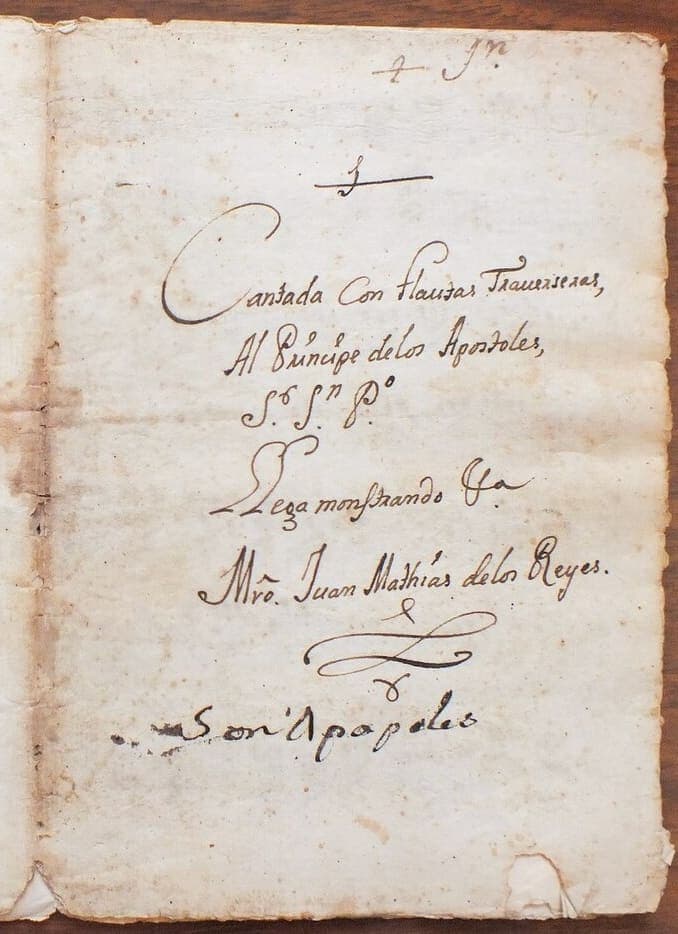 Cantada Con flautas Traverseras,
Al Principe delos Apostoles,
S.r S.n P.o
Llega monstrando &.a
Mro. Juan Mathias delos Reyes.
Son